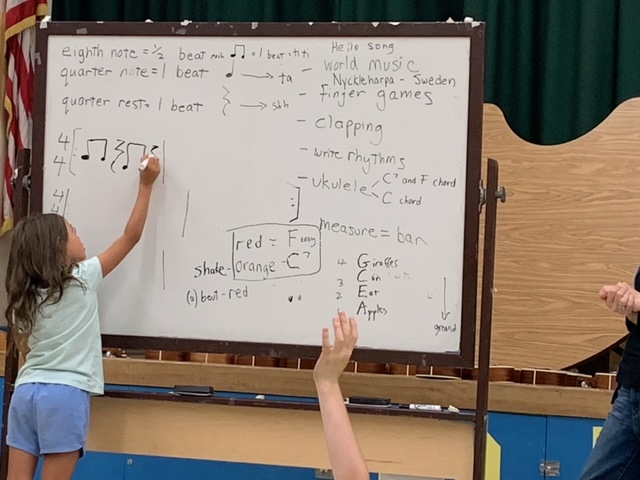 eighth note = 1/2 beat each ♫ = 1 beat = titi
quarter note = 1 beat ♩ → ta
quarter rest = 1 beat → shh
4
4
4
Hello song
- world music
Nyckleharpa - Sweden
- finger games
- clapping
- write rhythms
- ukulele < C7 and F chord
C chord
measure = bar
red = F easy
shake - orange = C7
(a) bout - red
4 Giraffes
3 Can
2 Eat
Apples
ground